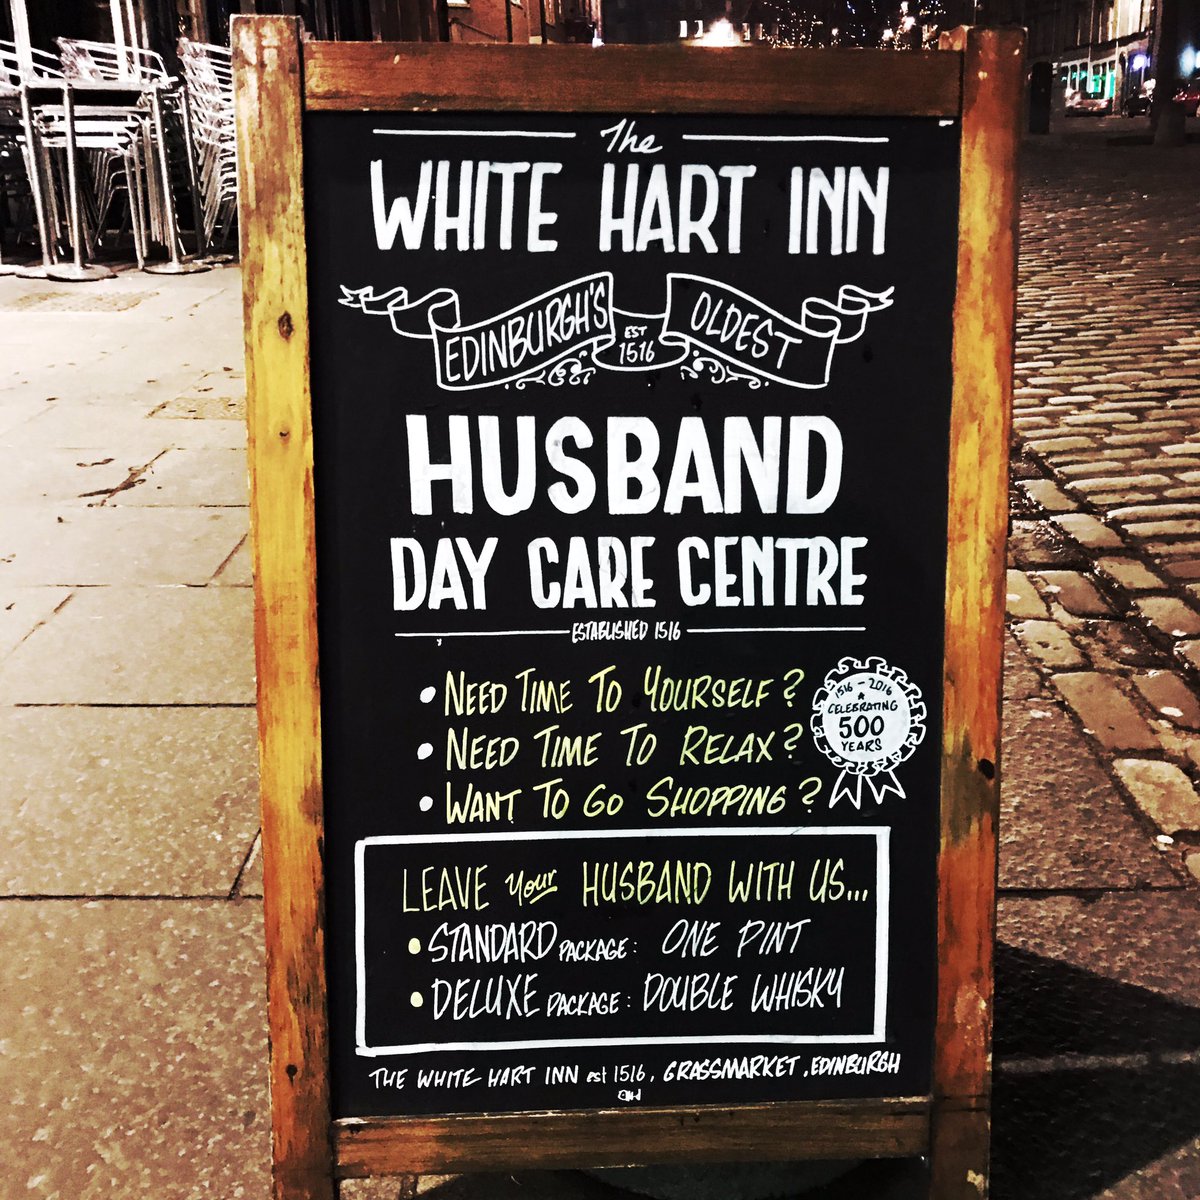 The
WHITE HART INN
EDINBURGH'S OLDEST
EST
1516
HUSBAND
DAY CARE CENTRE
ESTABLISHED 1516
• NEED TIME TO YOURSELF?
• NEED TIME TO RELAX?
• WANT TO GO SHOPPING?
1516 - 2016
CELEBRATING
500
YEARS
LEAVE your HUSBAND WITH US...
• STANDARD PACKAGE: ONE PINT
• DELUXE PACKAGE: DOUBLE WHISKY
THE WHITE HART INN est 1516, GRASSMARKET, EDINBURGH